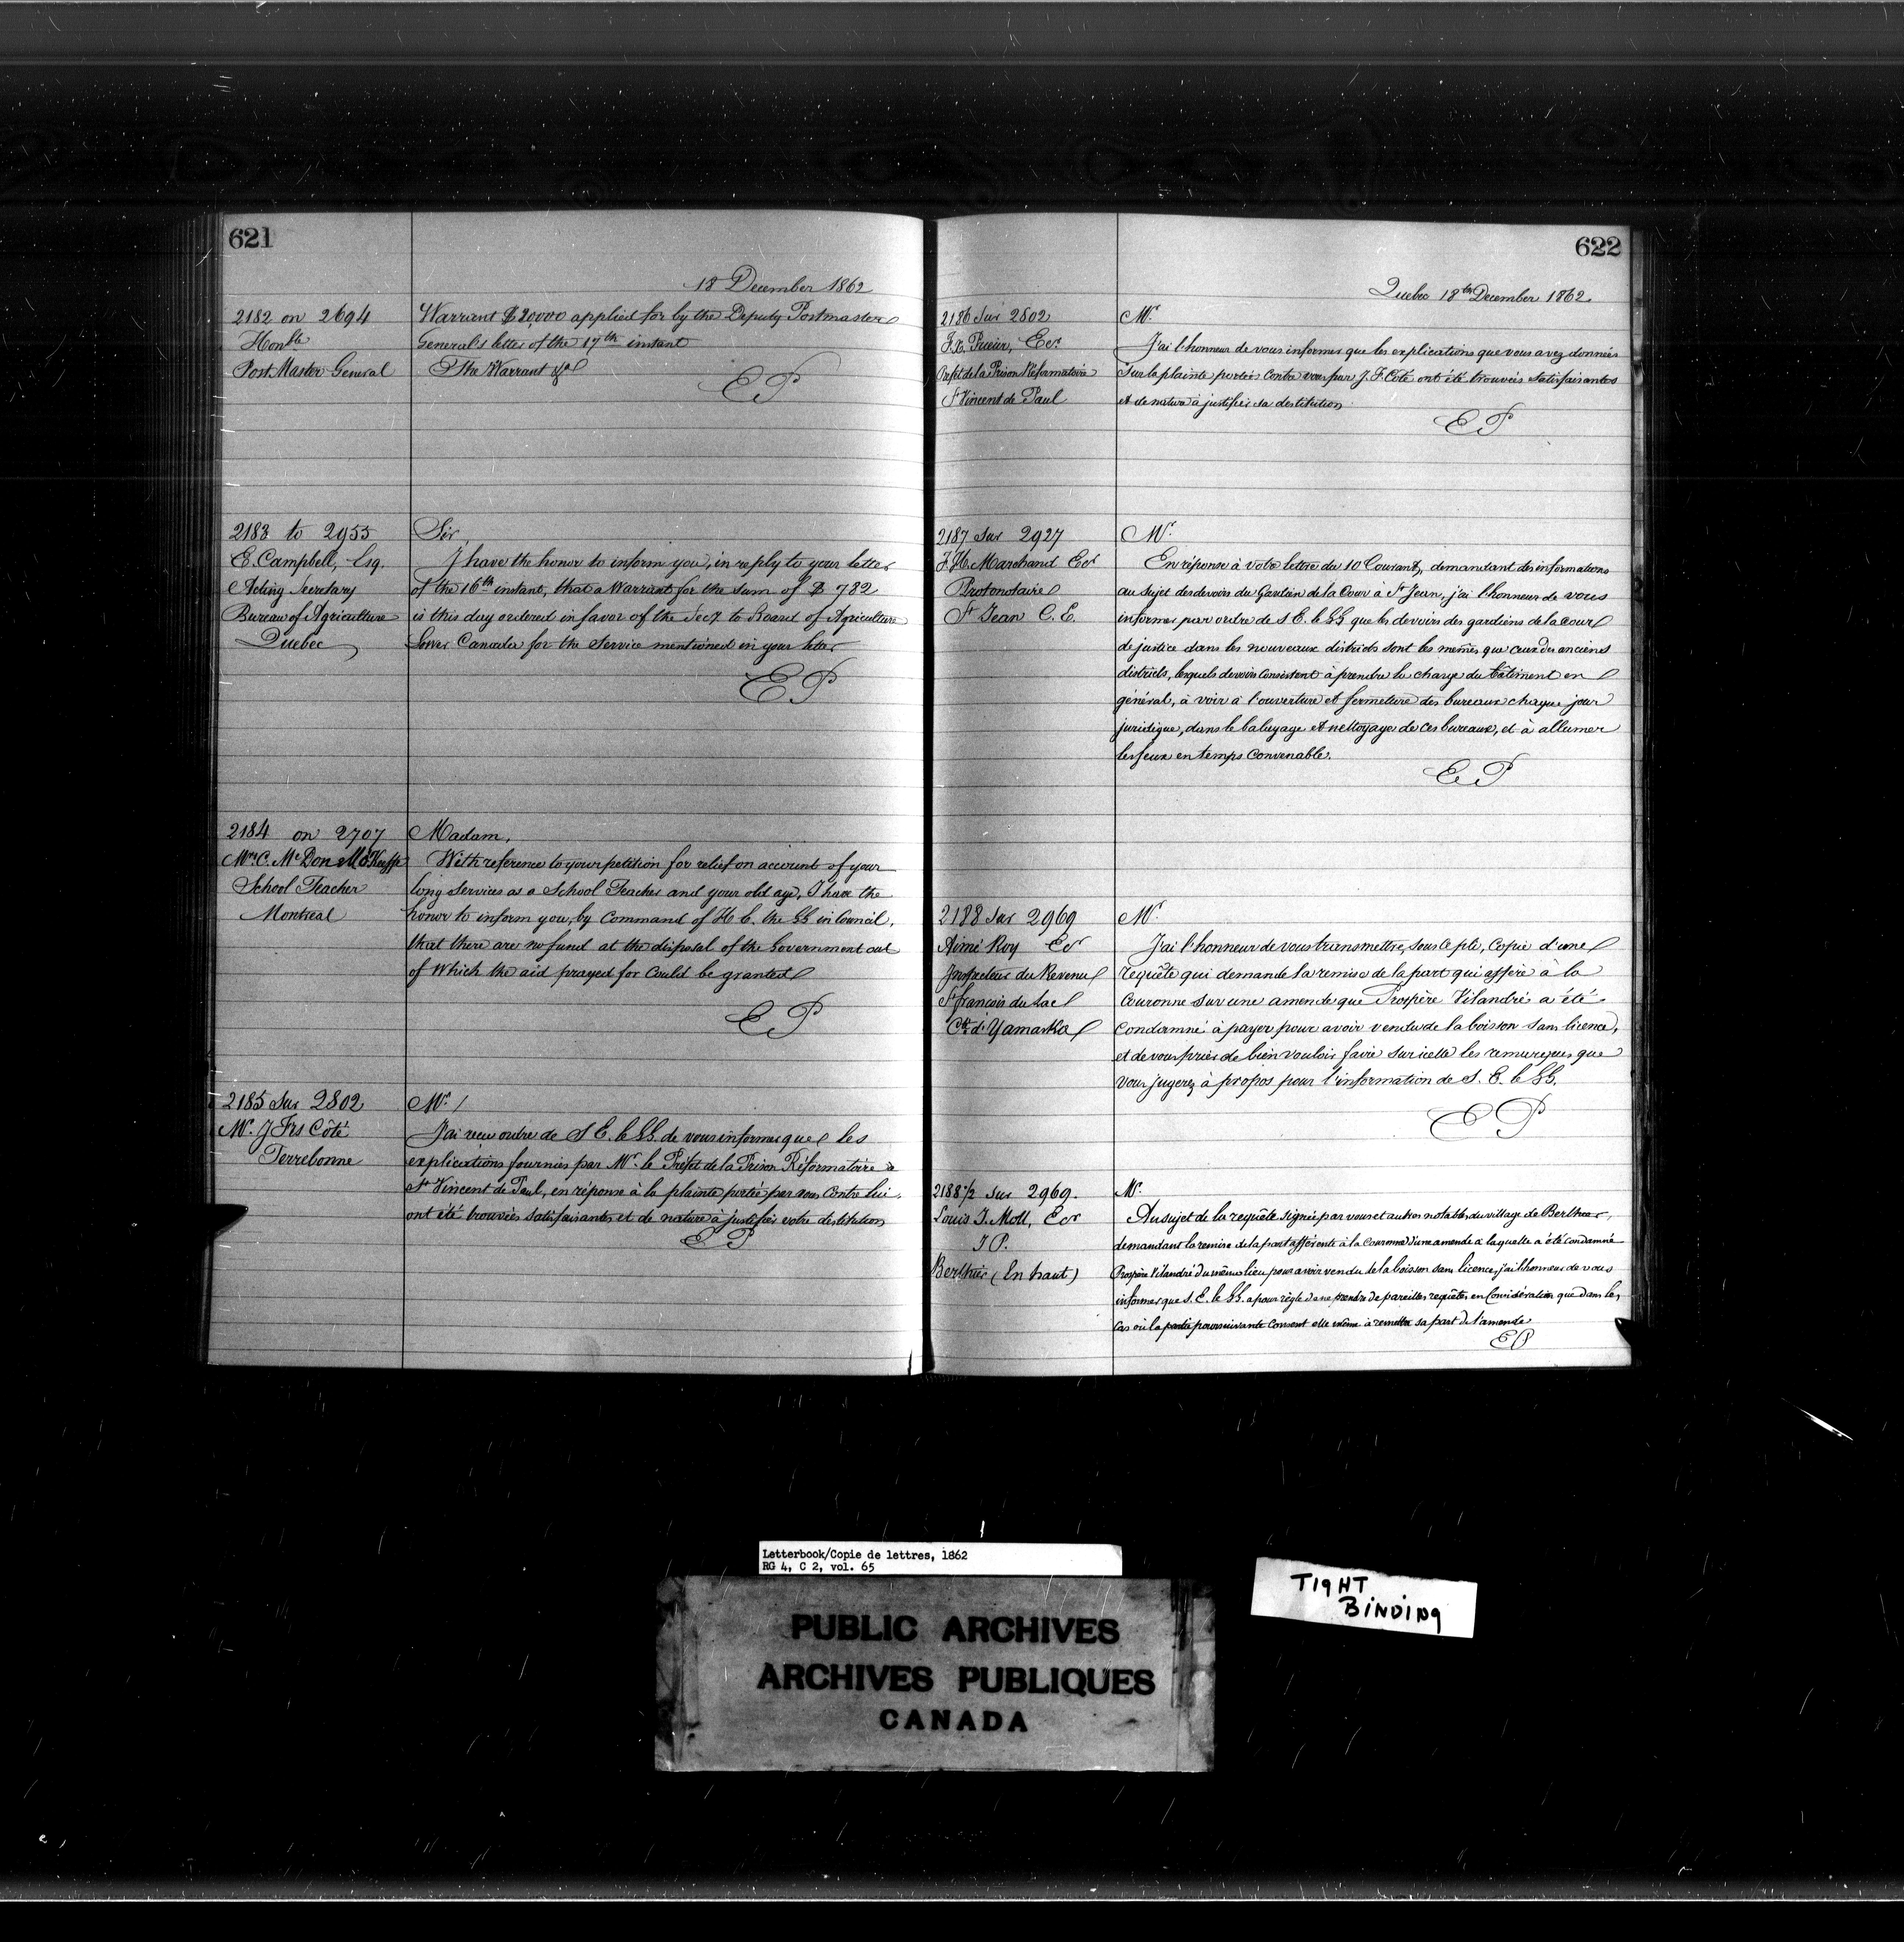 621
18 December 1862
2182 on 2694
Honble
Post Master General
Warrant $20,000 applied for by the Deputy Postmaster
General's letter of the 17th instant
The Warrant &a
EP
2183 to 2955
E. Campbell, Esq.
Acting Secretary
Bureau of Agriculture
Quebec
Sir,
I have the honor to inform you, in reply to your letter
of the 16th instant, that a Warrant for the sum of $ 782
is this day ordered in favor of the Secy to Board of Agriculture
Lower Canada for the Service mentioned in your letter
EP
2184 on 2707
Mrs C. McDon McKeeffe
School Teacher
Montreal
Madam,
With reference to your petition for relief on account of your
long services as a School Teacher and your old age, I have the
honor to inform you, by Command of H E. the GG in Council,
that there are no fund at the disposal of the Government out
of Which the aid prayed for Could be granted
EP
2185 Sur 2802
Mr. J Frs Côté
Terrebonne
Mr. /
J'ai reçu ordre de S E. le GG. de vous informer que les
explications fournies par Mr. le Préfet de la Prison Réformatoire de
St Vincent de Paul, en réponse à la plainte portée par vous Contre lui,
ont été trouvées satisfaisantes et de nature à justifier votre destitution
EP
622
Quebec 18th December 1862
2186 Sur 2802
F.X. Prieur, Ecr.
Prefet de la Prison Réformatoire
St Vincent de Paul
Mr.
J'ai l'honneur de vous informer que les explications que vous avez données
sur la plainte portée Contre vous par J. F. Côté ont été trouvées Satisfaisantes
et de nature à justifier sa destitution.
EP
2187 Sur 2927
F. G. Marchand Ecr
Protonotaire
St Jean C. E.
Mr.
En réponse à votre lettre du 10 Courant, demandant des informations
au sujet des devoirs du Gardien de la Cour à St Jean, j'ai l'honneur de vous
informer par ordre de S E. le GG que les devoirs des gardiens de la Cour
de justice dans les nouveaux districts sont les mêmes que ceux des anciens
districts, lesquels devoirs Consistent à prendre la charge du bâtiment en
général, à voir à l'ouverture et fermeture des bureaux chaque jour
juridique, dans le balayage et nettoyage de ces bureaux, et à allumer
les feux en temps Convenable.
EP
2188 Sur 2969
Aimé Roy Ecr
Inspecteur du Revenu
St François du Lac
Cté d'Yamaska
Mr.
J'ai l'honneur de vous transmettre, sous ce pli, Copie d'une
requête qui demande la remise de la part qui affère à la
Couronne sur une amende que Prospère Vilandré a été
Condamné à payer pour avoir vendu de la boisson sans licence,
et de vous prier de bien vouloir faire sur icelle les remarques que
vous jugerez à propos pour l'information de S. E. le GG.
EP
2188 1/2 Sur 2969.
Louis J. Moll, Ecr
J P.
Berthier (En haut)
Mr.
Au sujet de la requête signée par vous et autres notables du village de Berthier,
demandant la remise de la part afférente à la Couronne d'une amende à laquelle a été Condamné
Prospère Vilandré du même lieu pour avoir vendu de la boisson sans licence, j'ai l'honneur de vous
informer que S. E. le GG. a pour règle de ne prendre de pareilles requêtes en Considération que dans les
Cas où la partie poursuivante Consent elle même à remettre sa part de l'amende
EP
Letterbook/Copie de lettres, 1862
RG 4, C 2, vol. 65
PUBLIC ARCHIVES
ARCHIVES PUBLIQUES
CANADA
TIGHT
BINDING